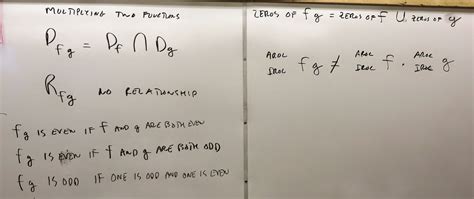 MULTIPLYING TWO FUNCTIONS
D_fg = D_f ∩ D_g
R_fg NO RELATIONSHIP
fg IS EVEN IF f AND g ARE BOTH EVEN
fg IS EVEN IF f AND g ARE BOTH ODD
fg IS ODD IF ONE IS ODD AND ONE IS EVEN
ZEROS OF fg = ZEROS OF f ∪ ZEROS OF g
AROC AROC AROC
IROC fg ≠ IROC f · IROC g